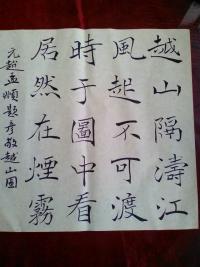 越山隔濤江
風起不可渡
時于圖中看
居然在煙霧
元趙孟頫題彥敬越山圖